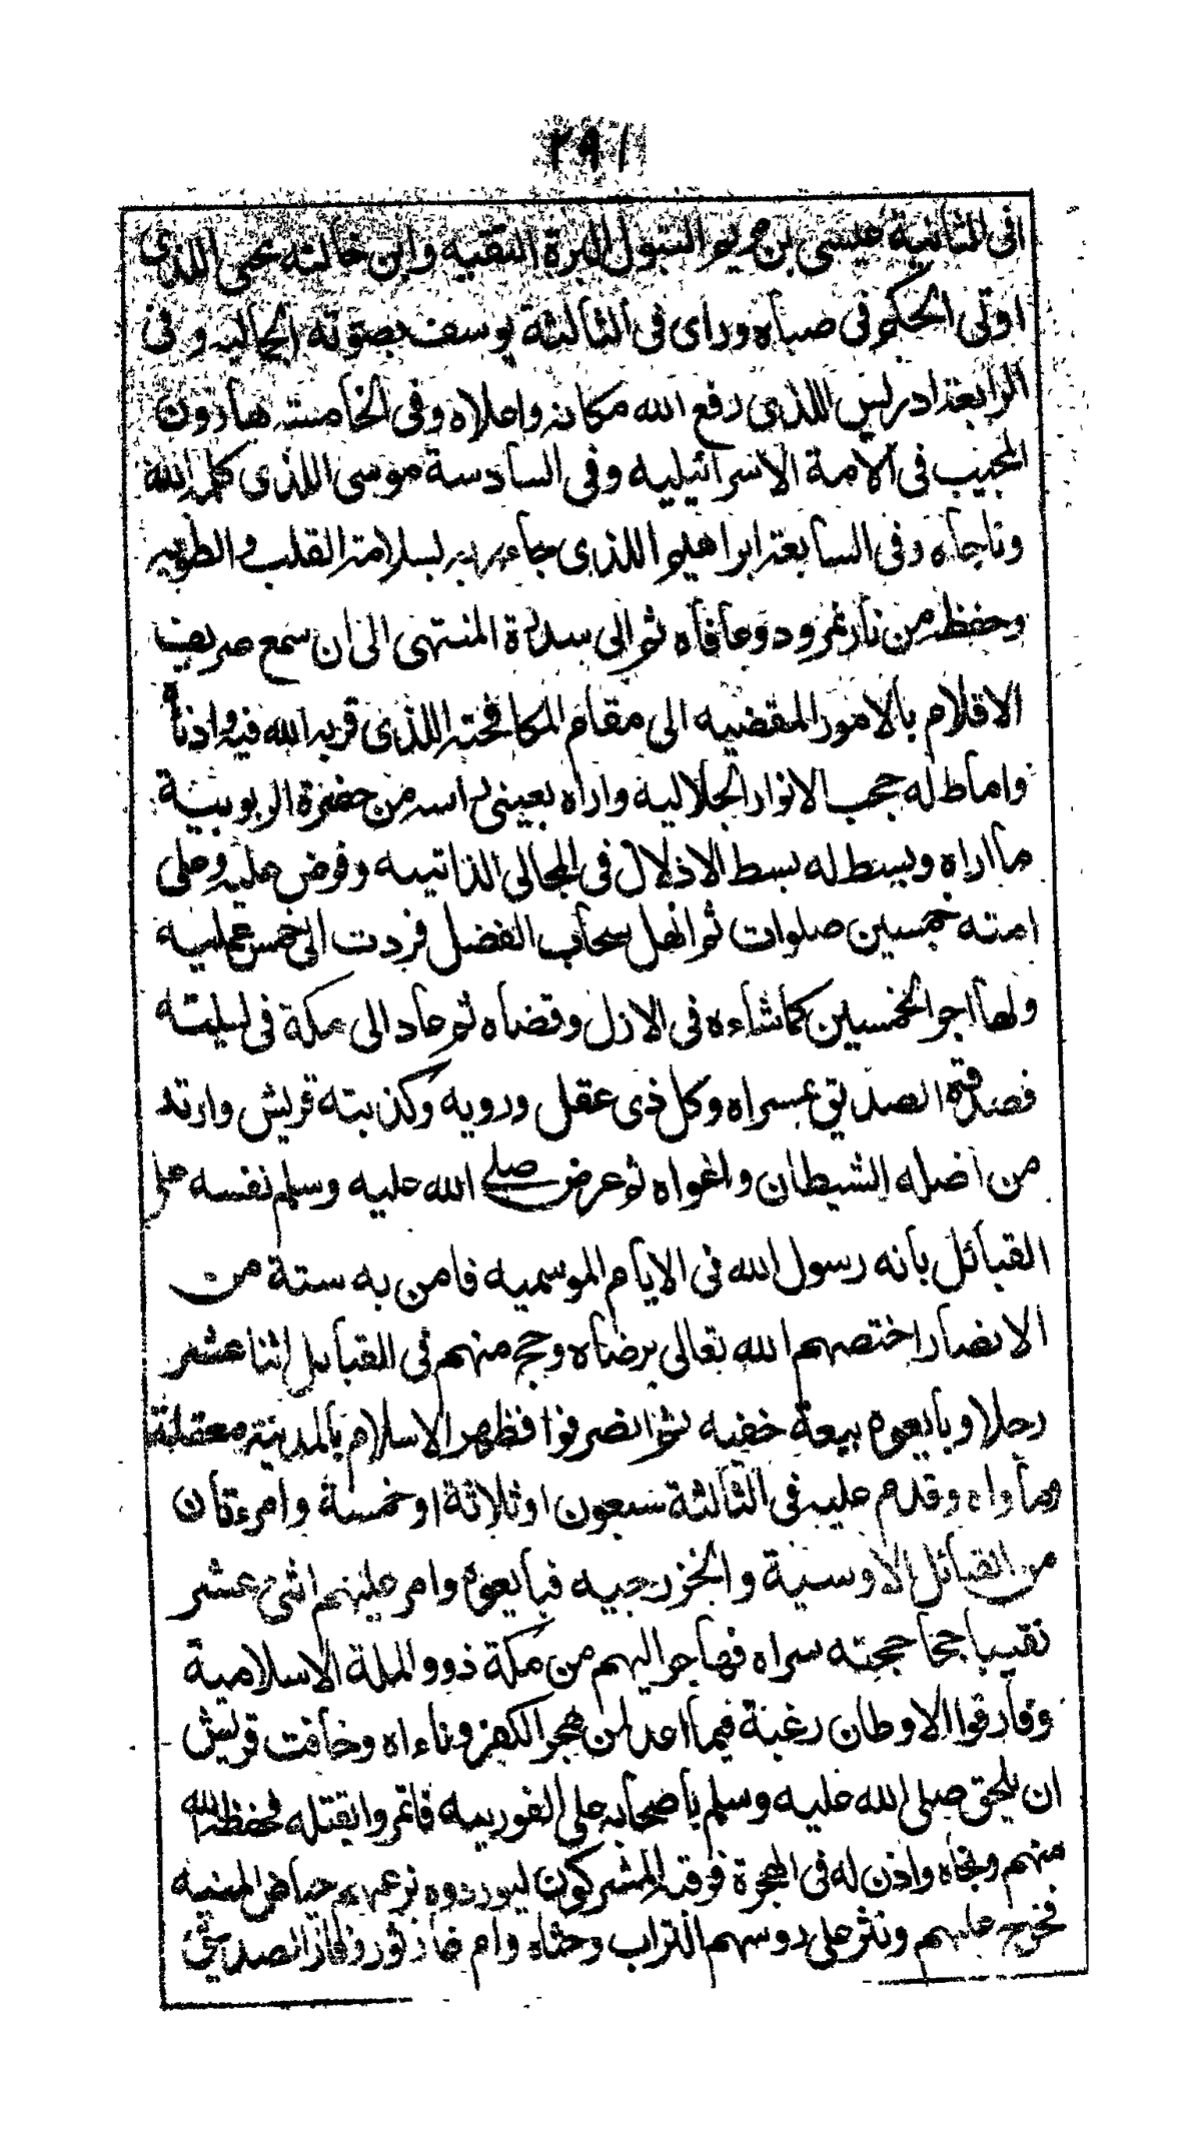 ٢٩١
افى الثانية عيسى بن مريم البتول البرة النقيه وابن خالته يحيى اللذى
اوتى الحكم فى صباه وراى فى الثالثة يوسف بصوته الجماليه وفى
الرابعة ادريس اللذى رفع الله مكانه واعلاه وفى الخامسة هارون
المجيب فى الامة الاسرائيليه وفى السادسة موسى اللذى كلمه الله
وناجاه وفى السابعة ابراهيم اللذى جاء ربه بسلامة القلب والطويه
وحفظه من نار نمرود وعافاه ثم الى سدرة المنتهى الى ان سمع صريف
الاقلام بالامور المقضيه الى مقام المكافحة اللذى قربه الله فيه وادناه
واماط له حجب الانوار الجلاليه واراه بعينى راسه من حضرة الربوبية
ما اراه وبسط له بسط الاذلال فى المجالى الذاتيه وفوض عليه وعلى
امته خمسين صلوات ثم انهل سحاب الفضل فردت الى خمس عمليه
ولها اجر الخمسين كما شاءه فى الازل وقضاه ثم عاد الى مكة فى ليلته
فصدقه الصديق بمسراه وكل ذى عقل ورويه وكذبته قريش وارتد
من اضله الشيطان واغواه ثم عرض صلى الله عليه وسلم نفسه على
القبائل بانه رسول الله فى الايام الموسميه فامن به ستة من
الانصار اختصهم الله تعالى برضاه وحج منهم فى القبابل اثنا عشر
رجلا وبايعوه بيعة خفيه ثم انصرفوا فظهر الاسلام بالمدينة معقلة
وماواه وقدم عليه فى الثالثة سبعون او ثلاثة او خمسة وامرءتان
من القبائل الاوسية والخزرجيه فبايعوه وامر عليهم اثنى عشر
نقيبا جحاجحته سراه فهاجر اليهم من مكة ذوو الملة الاسلامية
وفارقوا الاوطان رغبة فيما اعد لمن هجر الكفر وناءاه وخافت قريش
ان يلحق صلى الله عليه وسلم باصحابه على الفوريه فاتمروا بقتله فحفظه الله
منهم ونجاه واذن له فى الهجرة فرقبه المشركون ليوردوه بزعمهم حياض المنيه
فخرج عليهم ونثر على روسهم التراب وحثاه وام غار ثور وفاز الصديق